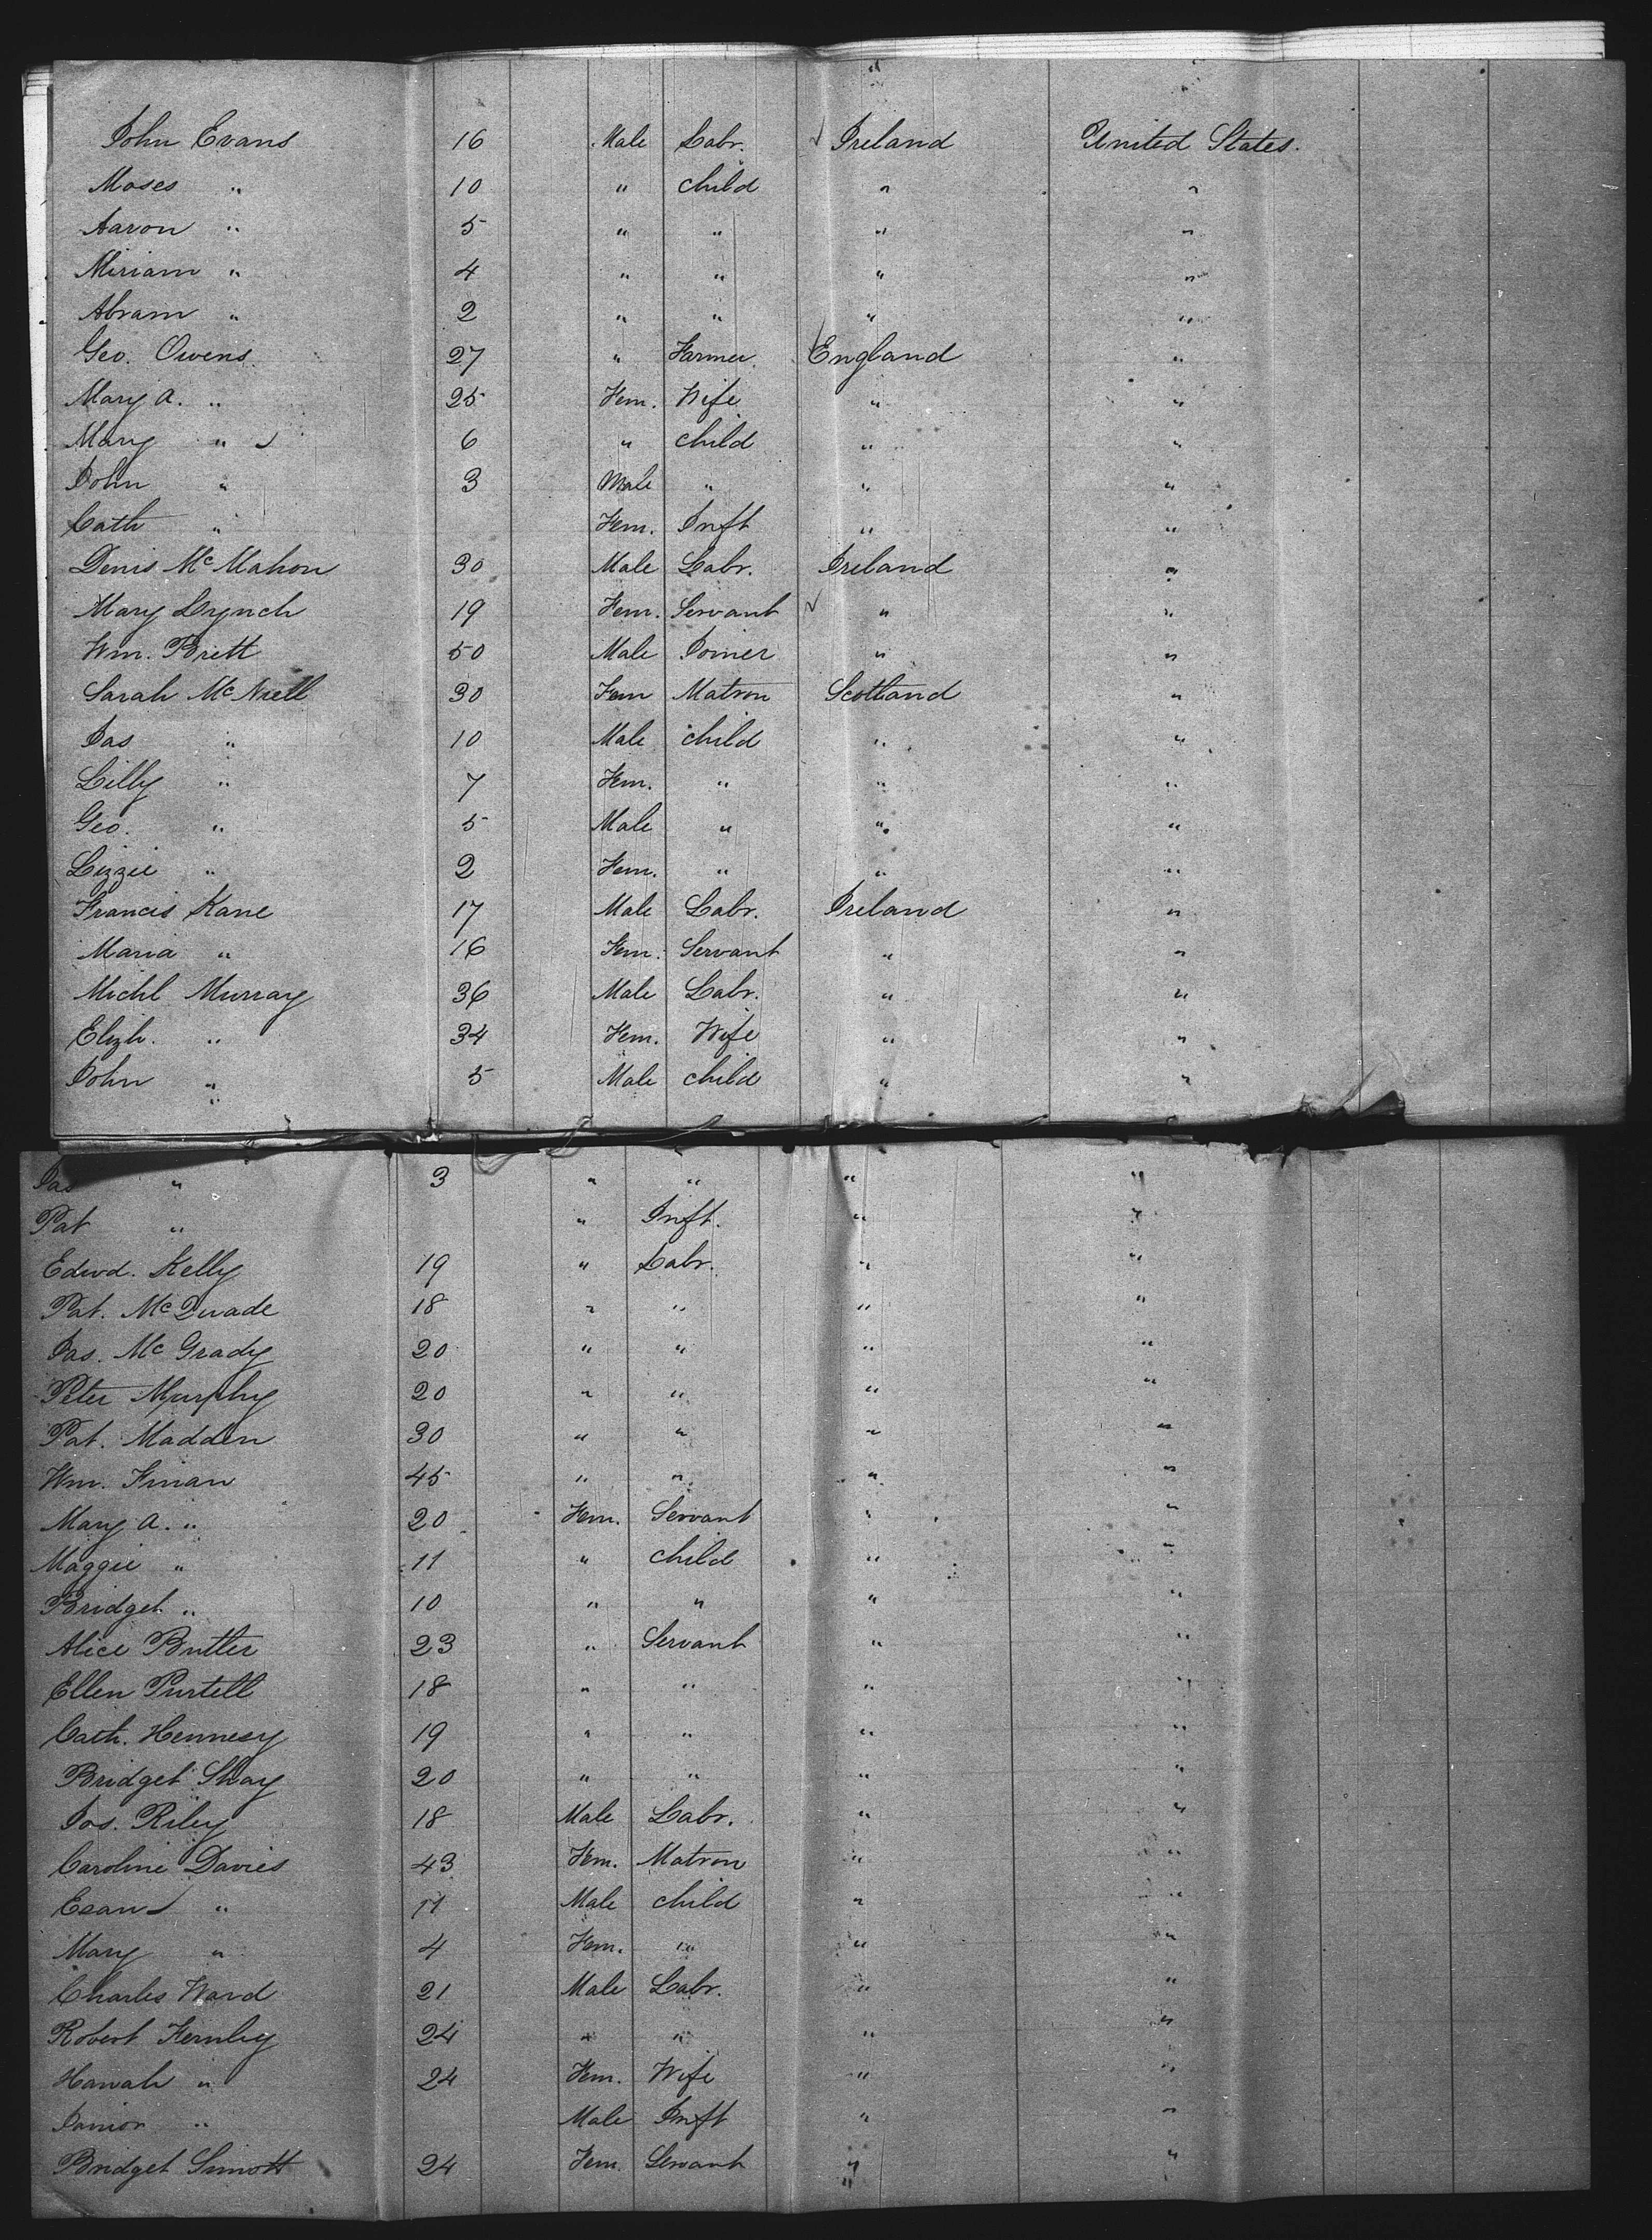 John Evans 16 Male Labr. ✓ Ireland United States.
Moses " 10 " child " "
Aaron " 5 " " " "
Miriam " 4 " " " "
Abram " 2 " " " "
Geo. Owens 27 " Farmer ✓ England "
Mary A. " 25 Fem. Wife " "
Mary " 6 " child " "
John " 3 Male " " "
Cath " Fem. Inft " "
Denis McMahon 30 Male Labr. Ireland "
Mary Lynch 19 Fem. Servant ✓ " "
Wm. Brett 50 Male Joiner " "
Sarah McNeill 30 Fem Matron Scotland "
Jas " 10 Male child " "
Lilly " 7 Fem. " " "
Geo. " 5 Male " " "
Lizzie " 2 Fem. " " "
Francis Kane 17 Male Labr. Ireland "
Maria " 16 Fem. Servant " "
Michl Murray 36 Male Labr. " "
Elizh. " 34 Fem. Wife " "
John " 5 Male child " "
Jas " 3 " " " "
Pat " " Inft. " "
Edwd. Kelly 19 " Labr. " "
Pat. McQuade 18 " " " "
Jas. McGrady 20 " " " "
Peter Murphy 20 " " " "
Pat. Madden 30 " " " "
Wm. Finan 45 " " " "
Mary A. " 20 Fem. Servant " "
Maggie " 11 " child " "
Bridget " 10 " " " "
Alice Butler 23 " Servant " "
Ellen Purtell 18 " " " "
Cath. Hennesy 19 " " " "
Bridget Shay 20 " " " "
Jas. Riley 18 Male Labr. " "
Caroline Davies 43 Fem. Matron " "
" 11 Male child " "
Mary " 4 Fem. " " "
Charles Ward 21 Male Labr. " "
Robert Fernley 24 " " " "
Hanah " 24 Fem. Wife " "
Junior " Male Inft " "
Bridget Sinnott 24 Fem. Servant " "